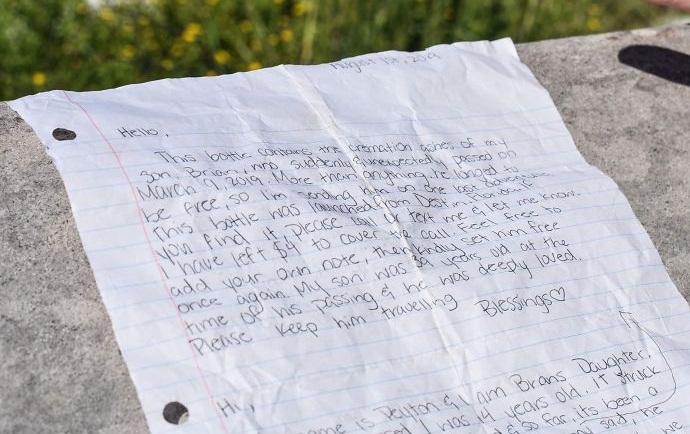 August 1st, 2019
Hello,
This bottle contains the cremation ashes of my
son, Brian, who suddenly & unexpectedly passed on
March 9, 2019. More than anything, he longed to
be free, so I'm sending him on one last adventure.
This bottle was launched from Destin, Florida. If
you find it, please call or text me & let me know.
I have left $4 to cover the call. Feel free to
add your own note, then kindly set him free
once again. My son was 39 years old at the
time of his passing & he was deeply loved.
Please keep him travelling Blessings♡
Hi,
name is Peyton & I am Brians Daughter.
I was 14 years old. It struck
& so far, its been a
sad, he